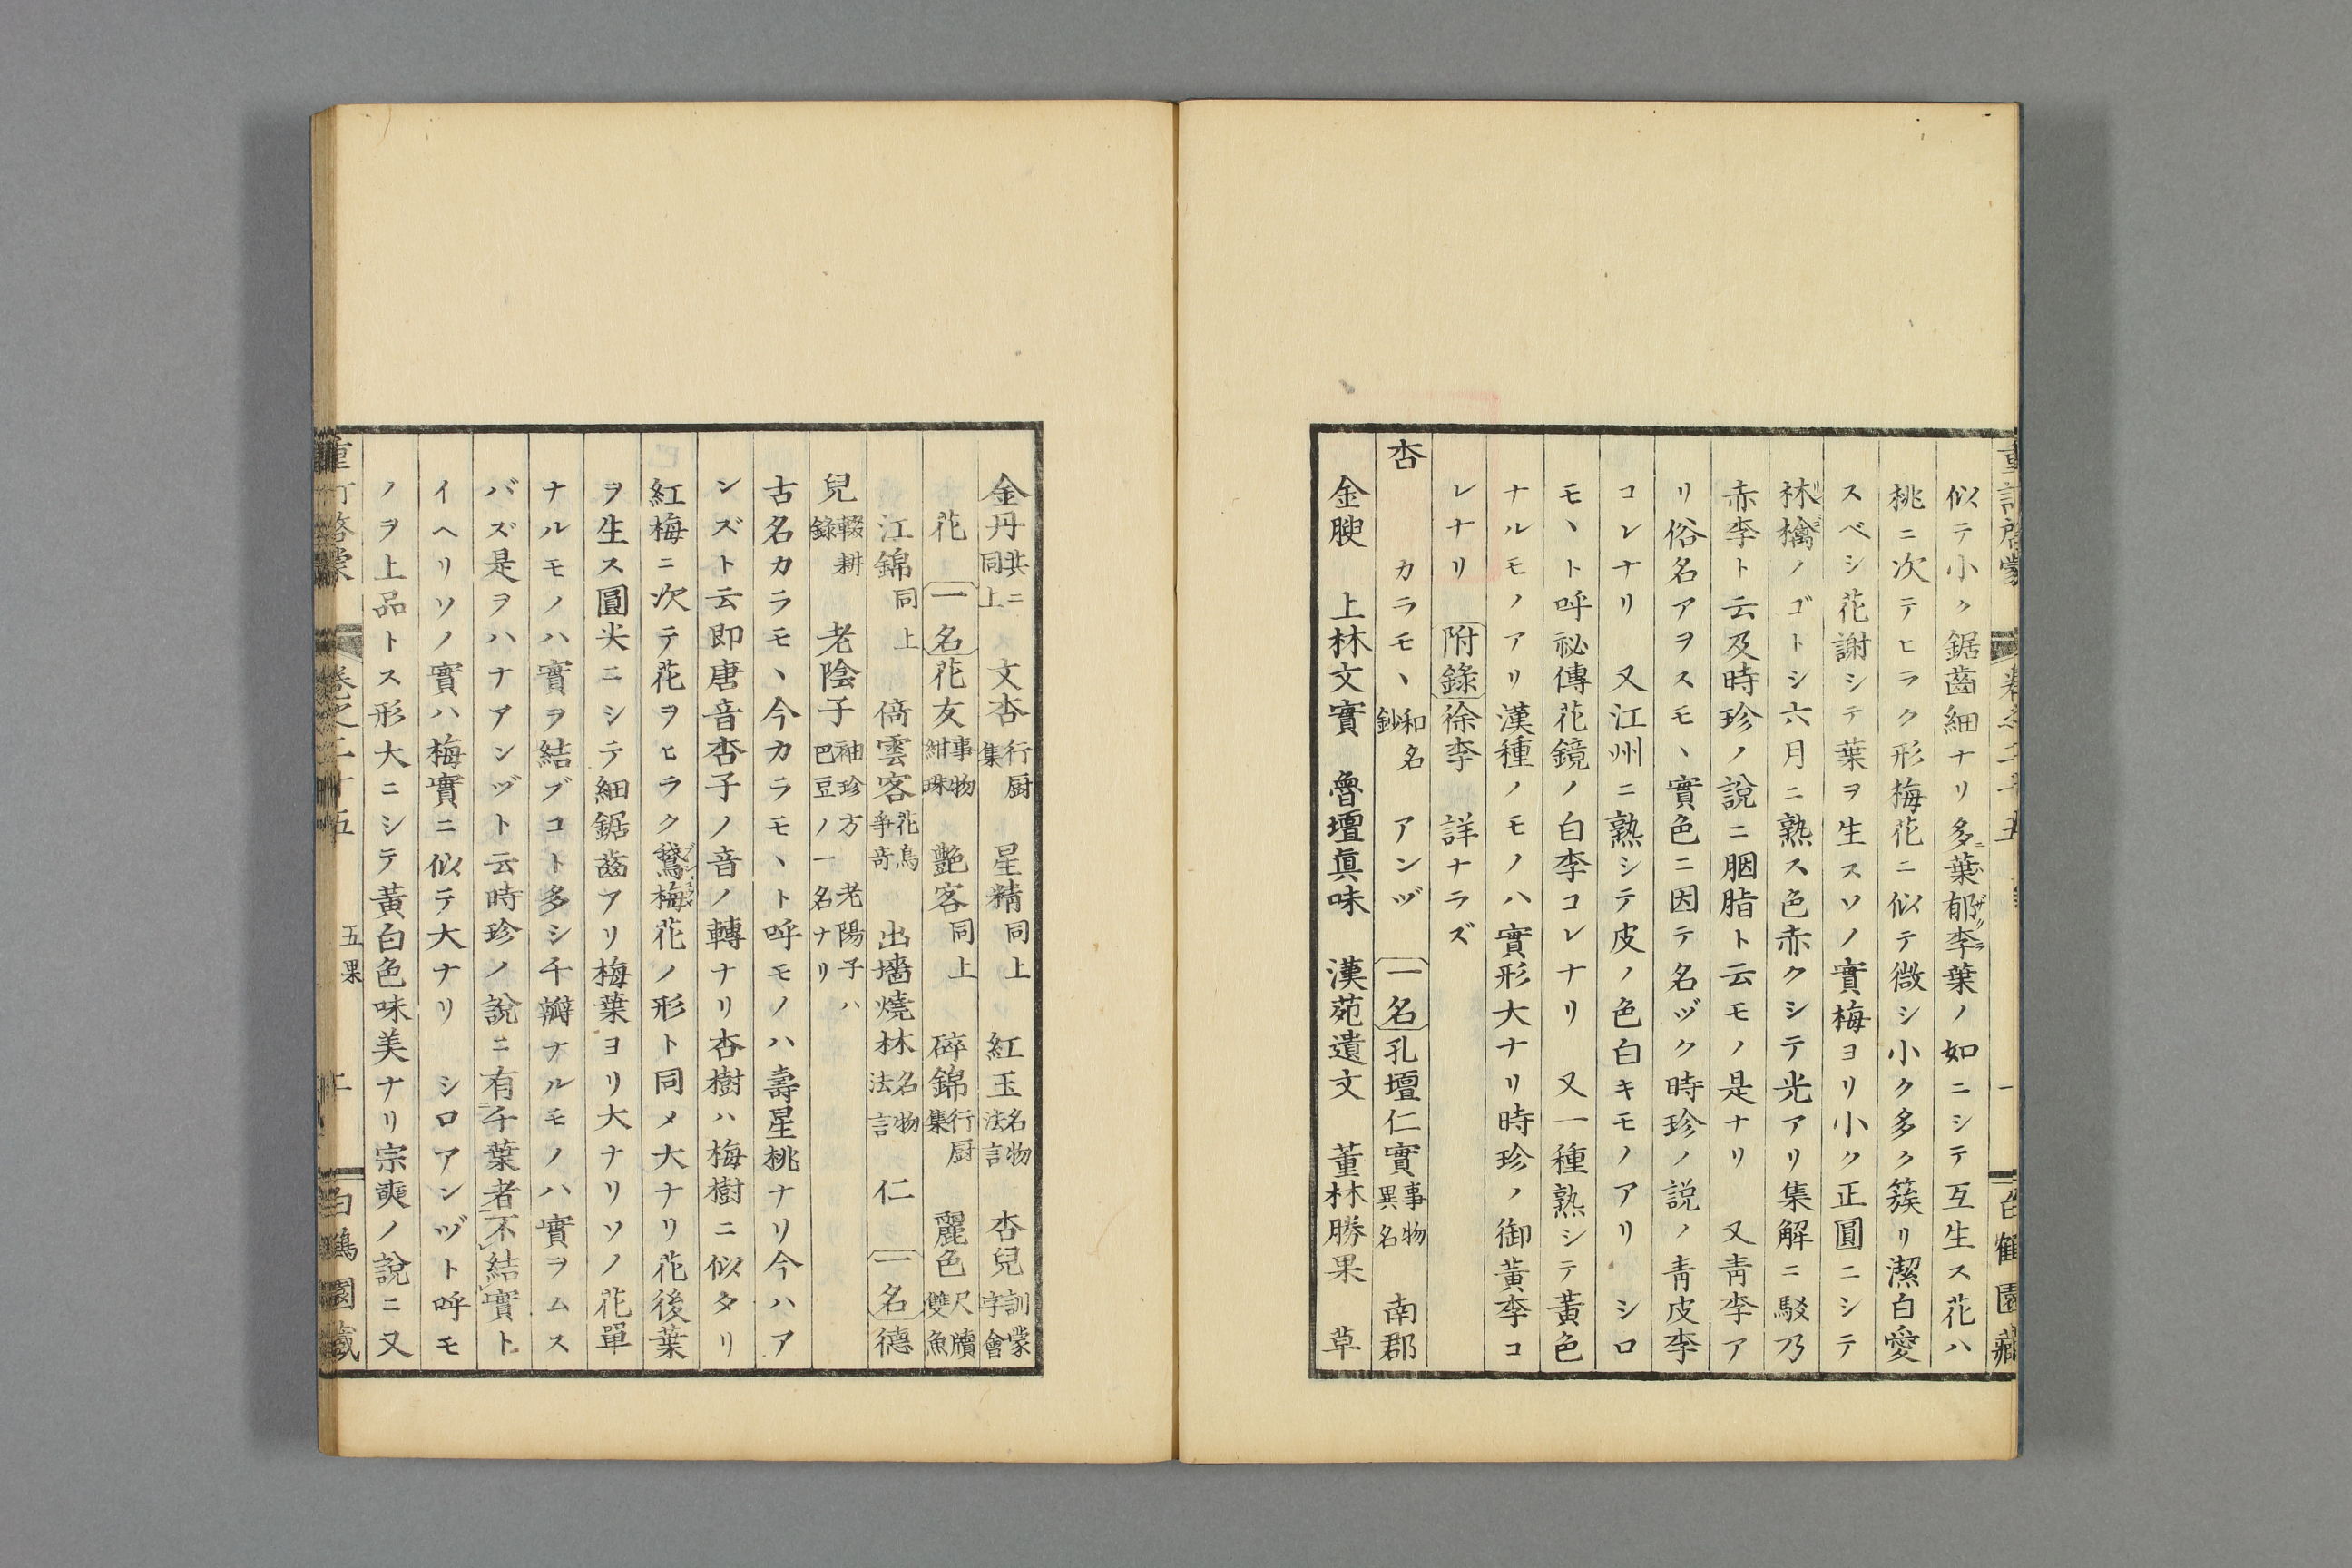 似テ小ク鋸齒細ナリ多葉郁李葉ノ如ニシテ互生ス花ハ
桃ニ次テヒラク形梅花ニ似テ微シ小ク多ク簇リ潔白愛
スベシ花謝シテ葉ヲ生スソノ實梅ヨリ小ク正圓ニシテ
林檎ノゴトシ六月ニ熟ス色赤クシテ光アリ集解ニ駁乃
赤李ト云及時珍ノ說ニ胭脂ト云モノ是ナリ 又青李ア
リ俗名アヲスモヽ實色ニ因テ名ヅク時珍ノ說ノ青皮李
コレナリ 又江州ニ熟シテ皮ノ色白キモノアリ シロ
モヽト呼祕傳花鏡ノ白李コレナリ 又一種熟シテ黃色
ナルモノアリ漢種ノモノハ實形大ナリ時珍ノ御黃李コ
レナリ 附錄徐李 詳ナラズ
杏 カラモヽ和名鈔 アンヅ 一名孔壇仁實事物異名 南郡
金腴 上林文實 魯壇眞味 漢苑遺文 董林勝果 草
金丹共ニ同上 文杏行厨集 星精同上 紅玉名物法言 杏兒訓蒙字會
花 一名花友事物紺珠 艷客同上 碎錦行厨集 麗色尺牘雙魚
江錦同上 倚雲客花鳥爭奇 出墻燒林名物法言 仁 一名德
兒輟耕錄 老陰子袖珍方 老陽子ハ巴豆ノ一名ナリ
古名カラモヽ今カラモヽト呼モノハ壽星桃ナリ今ハア
ンズト云即唐音杏子ノ音ノ轉ナリ杏樹ハ梅樹ニ似タリ
紅梅ニ次テ花ヲヒラク鵞梅花ノ形ト同メ大ナリ花後葉
ヲ生ス圓尖ニシテ細鋸齒アリ梅葉ヨリ大ナリソノ花單
ナルモノハ實ヲ結ブコト多シ千瓣ナルモノハ實ヲムス
バズ是ヲハナアンヅト云時珍ノ說ニ有千葉者不結實ト
イヘリソノ實ハ梅實ニ似テ大ナリ シロアンヅト呼モ
ノヲ上品トス形大ニシテ黃白色味美ナリ宗奭ノ說ニ又
卷之二十五 五果 白鶴園藏